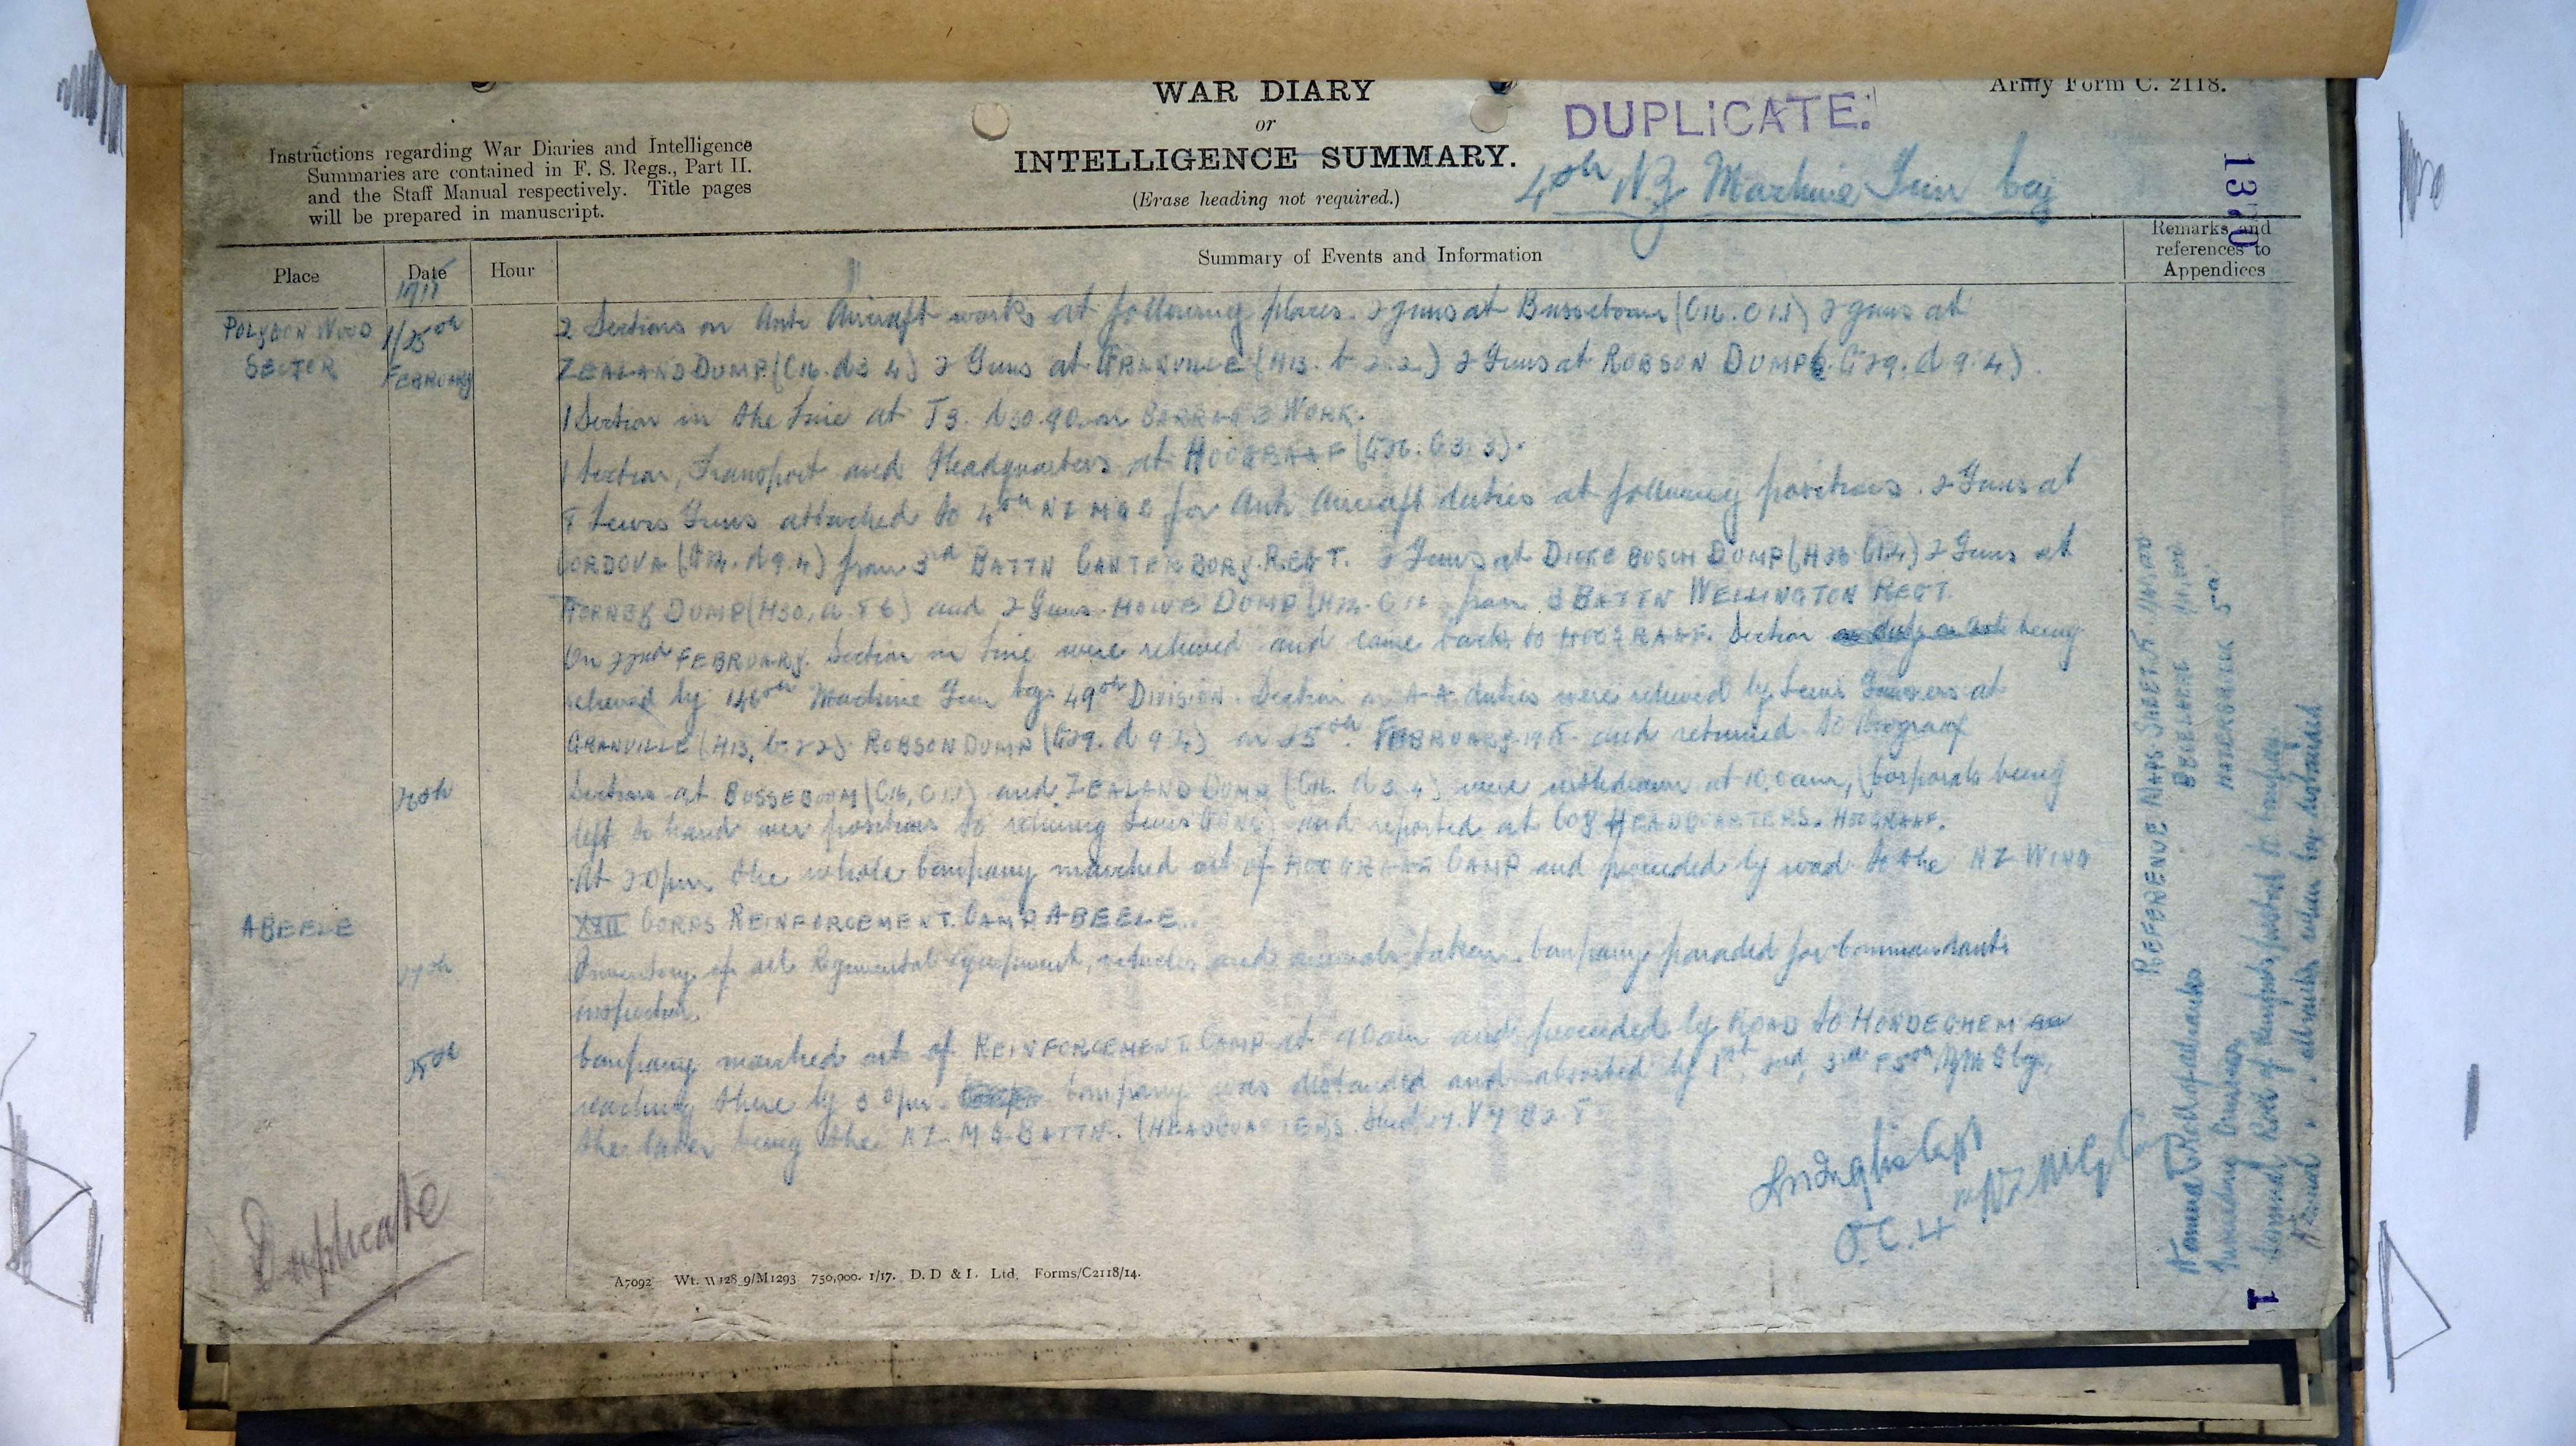 WAR DIARY
or
INTELLIGENCE SUMMARY.
(Erase heading not required.)
Army Form C. 2118.
DUPLICATE.
4th NZ Machine Gun Coy
1370
Instructions regarding War Diaries and Intelligence
Summaries are contained in F. S. Regs., Part II.
and the Staff Manual respectively. Title pages
will be prepared in manuscript.
Place
Date
Hour
Summary of Events and Information
Remarks and
references to
Appendices
POLYGON WOOD
SECTOR
1/25th
FEBRUARY
2 Sections on Anti Aircraft works at following places. 2 guns at Busseboom (G16. C 1.1) 2 guns at
ZEALAND DUMP (G16. d 3 4) 2 Guns at GRANVILLE (H13. b 2.2) 2 Guns at ROBSON DUMP (G29. d 9.4).
1 Section in the Line at J3. d 30.90 on BARRAGE WORK.
1 Section, Transport and Headquarters at HOOGRAAF (G26. C 3.3).
8 Lewis Guns attached to 4th NZ MGC for Anti Aircraft duties at following positions. 2 Guns at
CORDOVA ( d 9.4) from 3rd BATTN CANTERBURY REGT. 2 Guns at DICKEBUSCH DUMP (H26 ) 2 Guns at
DUMP (H30, a. 8 6) and 2 Guns HOWE DUMP from 3 BATTN WELLINGTON REGT.
On 22nd FEBRUARY. Section in Line were relieved and came back to HOOGRAAF. Section being
relieved by 146th Machine Gun Coy 49th DIVISION. Section on A-A duties were relieved by Lewis Gunners at
GRANVILLE (H13, b 2 2) ROBSON DUMP (G29. d 9 4) on 25th FEBRUARY and returned to Hoograaf
26th
Sections at BUSSEBOOM (G16, C 1.1) and ZEALAND DUMP (G16. d 3.4) were withdrawn at 10.0am, (Corporals being
left to hand over positions to relieving Lewis GUNS) and reported at COY HEADQUARTERS. HOOGRAAF.
At 2.0pm the whole Company marched out of HOOGRAAF CAMP and proceeded by road to the NZ WING
ABEELE
XXII CORPS REINFORCEMENT CAMP ABEELE.
27th
Inventory of all Regimental equipment, vehicles and animals taken. Company paraded for Commandants
inspection.
28th
Company marched out of REINFORCEMENT CAMP at 9.0am and proceeded by ROAD to HONDEGHEM
reaching there by 3 0pm. Company was disbanded and absorbed by 1st, 2nd, 3rd & 5th Coys,
the latter being the NZ M G BATTN. (HEADQUARTERS Sheet 27. V 7 B 2.8
Capt
O.C. 4th NZ MG Coy
REFERENCE MAPS SHEET
HAZEBROUCK 5a
Duplicate
A7092 Wt. W128 9/M1293 750,000. 1/17. D. D & L. Ltd. Forms/C2118/14.
1